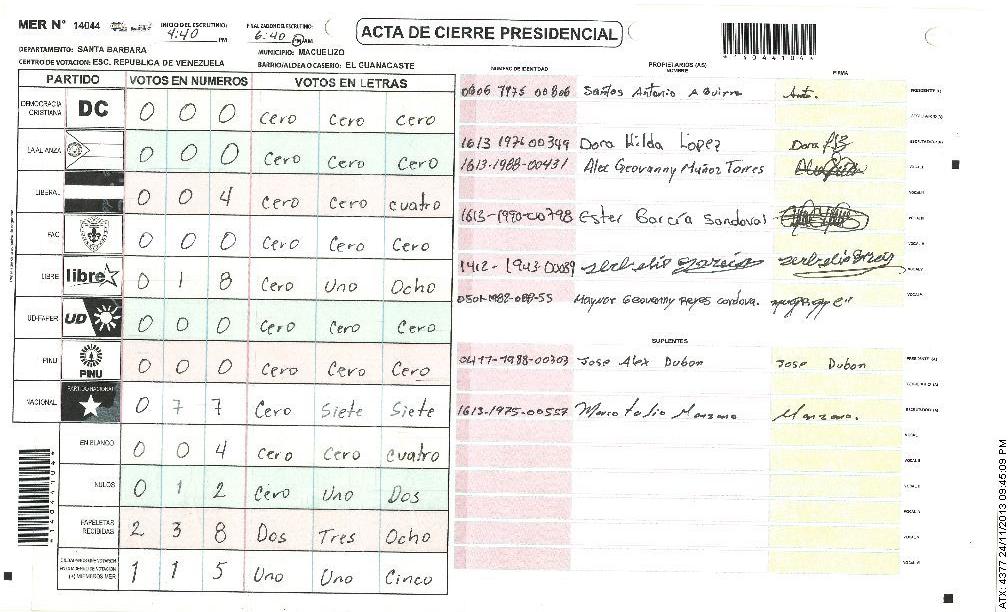 MER N° 14044 INICIO DEL ESCRUTINIO: 4:40 PM FINALIZACION DEL ESCRUTINIO: 6:40 PM AM
ACTA DE CIERRE PRESIDENCIAL
*14044104*
DEPARTAMENTO: SANTA BARBARA MUNICIPIO: MACUELIZO
CENTRO DE VOTACION: ESC. REPUBLICA DE VENEZUELA BARRIO/ALDEA O CASERIO: EL GUANACASTE
PARTIDO VOTOS EN NUMEROS VOTOS EN LETRAS
DEMOCRACIA CRISTIANA DC 0 0 0 Cero Cero Cero
LA ALIANZA 0 0 0 Cero Cero Cero
LIBERAL 0 0 4 Cero Cero cuatro
FAC 0 0 0 Cero Cero Cero
LIBRE libre 0 1 8 Cero Uno Ocho
UD-FAPER UD 0 0 0 Cero Cero Cero
PINU PINU 0 0 0 Cero Cero Cero
NACIONAL PARTIDO NACIONAL 0 7 7 Cero Siete Siete
EN BLANCO 0 0 4 Cero Cero cuatro
NULOS 0 1 2 Cero Uno Dos
PAPELETAS RECIBIDAS 2 3 8 Dos Tres Ocho
(+) MIEMBROS MER 1 1 5 Uno Uno Cinco
NUMERO DE IDENTIDAD PROPIETARIOS (AS) NOMBRE FIRMA
0606 1975 00806 Santos Antonio Aguirre PRESIDENTE (A)
1613 1976 00349 Dora Hilda Lopez Dora SECRETARIO (A)
1613-1988-00431 Alex Geovanny Muñoz Torres VOCAL I
VOCAL II
1613-1990-00798 Ester García Sandoval VOCAL III
1412-1943-00089 serbelio garcia serbelio garcia VOCAL V
0501-1982-088-55 Maynor Geovanny Reyes cordova.
SUPLENTES
0417-1988-00303 Jose Alex Dubon Jose Dubon PRESIDENTE (A)
1613-1975-00557 Marco tulio Manzano Manzano. SECRETARIO (A)
VOCAL I
VOCAL II
*14044104*
ATX: 4377 24/11/2013 09:45:09 PM